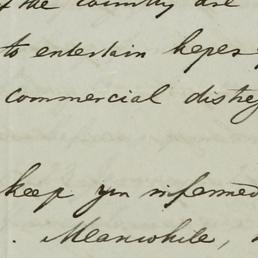 the country are
to entertain hopes
commercial distre
keep you informed
. Meanwhile,